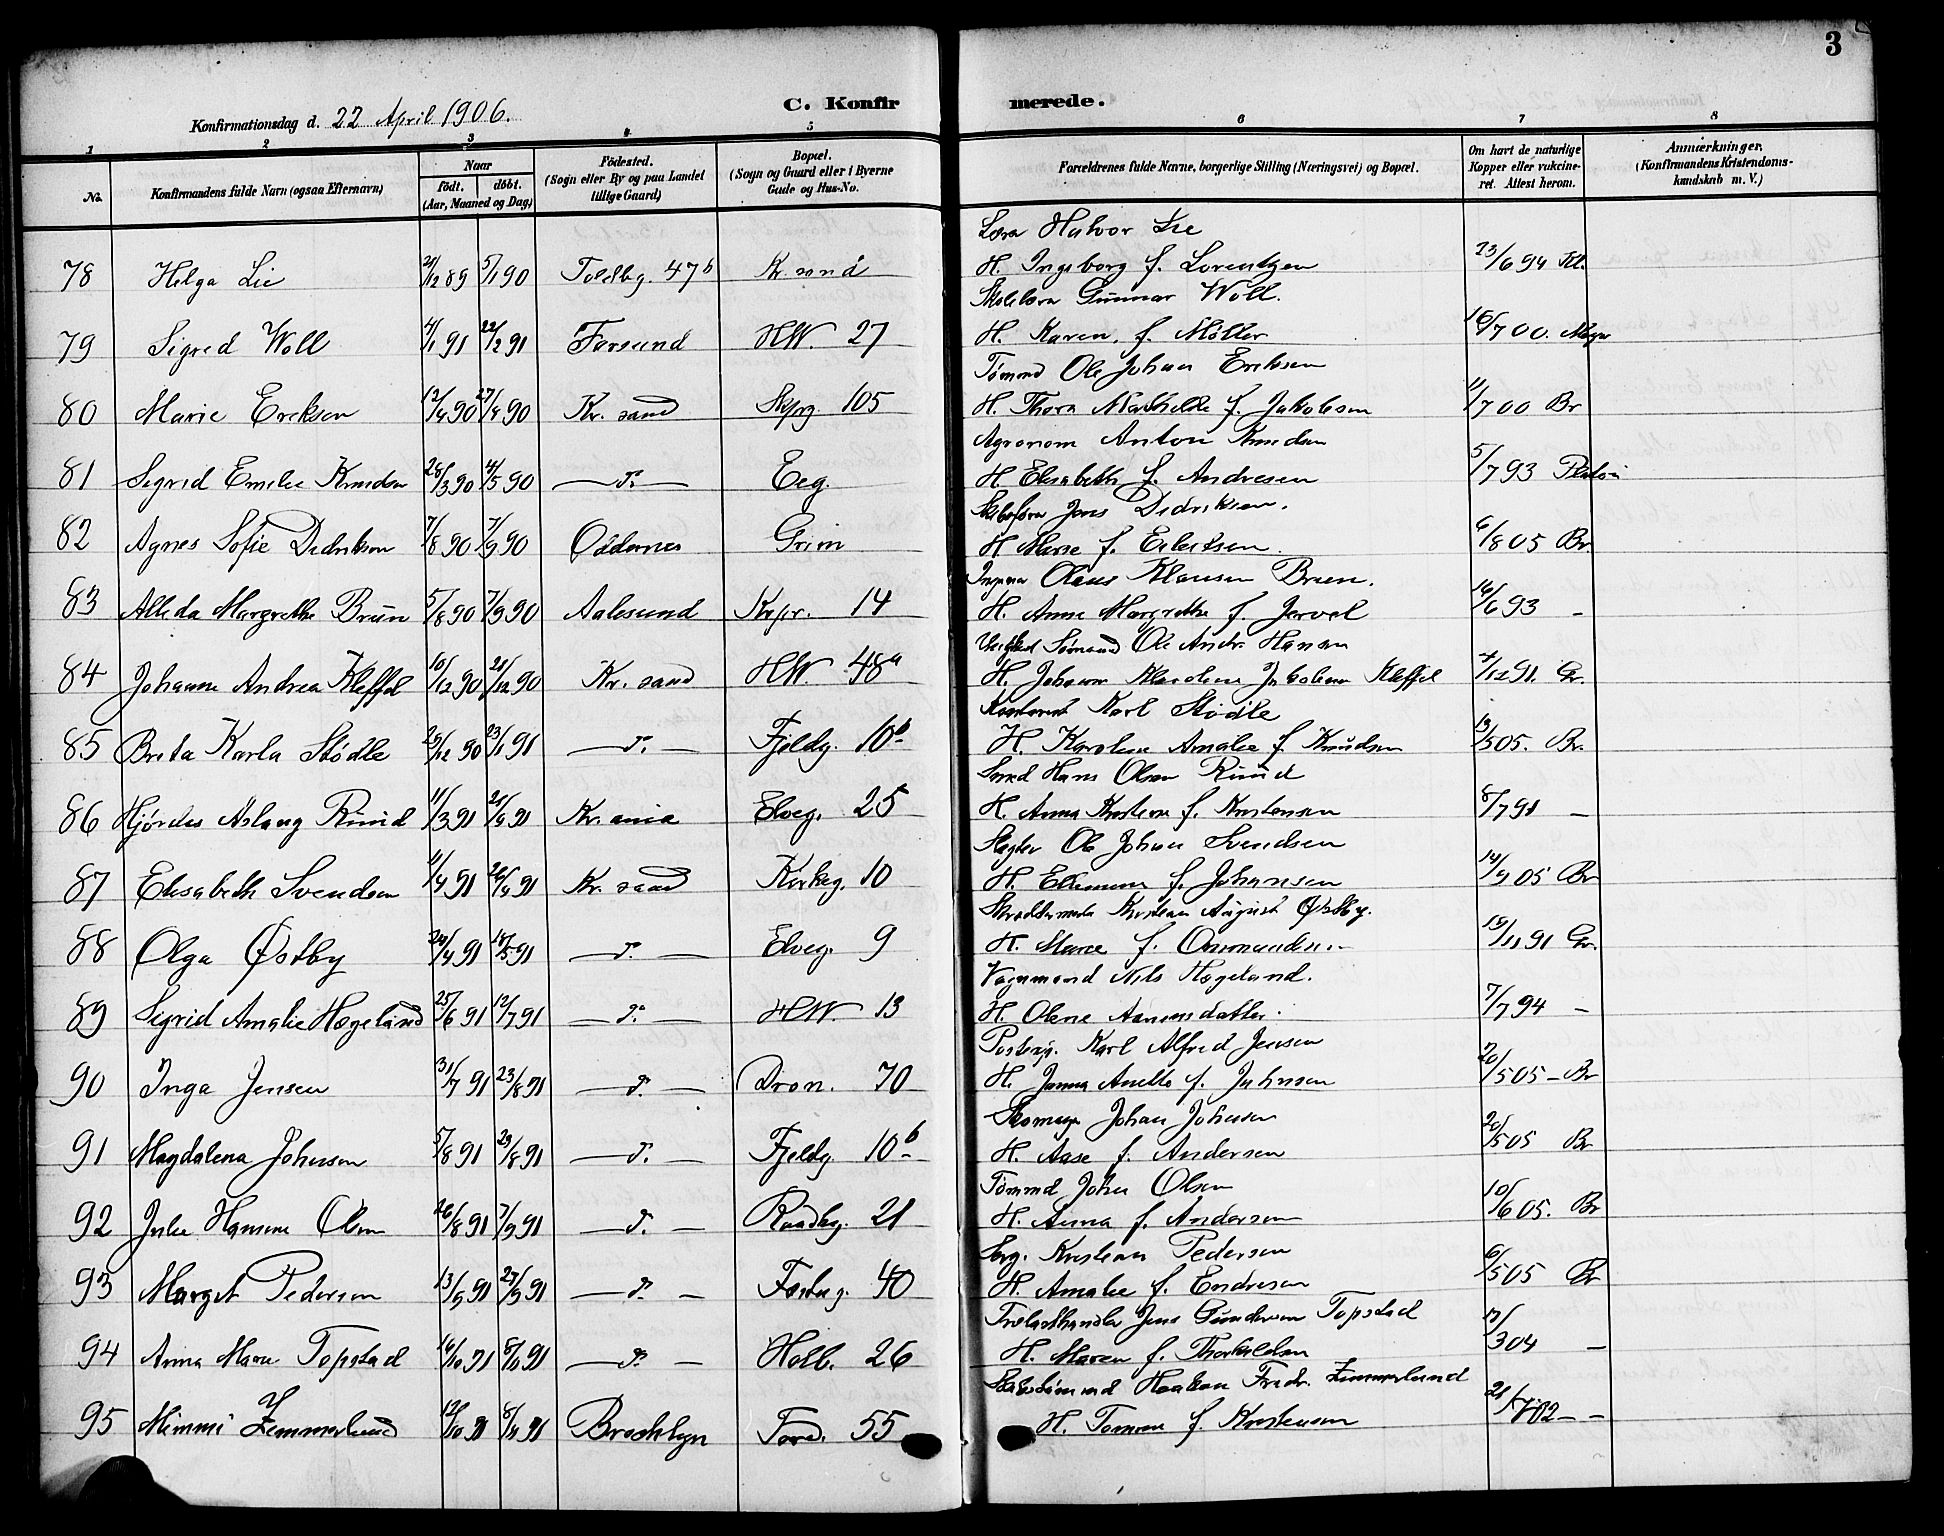 3
C. Konfirmerede.
Konfirmationsdag d. 22 April 1906.
1 2 3 4 5 6 7 8
No. Konfirmandens fulde Navn (ogsaa Efternavn) Naar født. døbt. (Aar, Maaned og Dag) Fødested. (Sogn eller By og paa Landet tillige Gaard) Bopæl. (Sogn og Gaard eller i Byerne Gade og Hus-No. Forældrenes fulde Navne, borgerlige Stilling (Næringsvei) og Bopæl. Om havt de naturlige Kopper eller vakcineret. Attest herom. Anmærkninger. (Konfirmandens Kristendomskundskab m. V.)
Halvor Lie
78 Helga Lie 21/12 89 5/1 90 Toldbg. 47b Kr.sand H. Ingeborg f. Lorentzen 23/6 94
Gunnar Woll.
79 Sigrid Woll 4/1 91 22/2 91 Farsund HW. 27 H. Karen. f. Møller 16/7 00.
Tømmd Ole Johan Eriksen
80 Marie Eriksen 12/4 90 27/4 90 Kr. sand Skpg. 105 H. Thora Mathilde f. Jakobsen 11/7 00 Br
Agronom Anton Knudsen
81 Sigrid Emilie Knudsen 28/3 90 4/5 90 — d. — Eeg. H. Elisabeth f. Andresen 5/7 93
Jens Didriksen.
82 Agnes Sofie Didriksen 7/8 90 7/9 90 Oddernes Grim H Marie f. Eilertsen. 6/8 05 Br
Olaus Klausen Bruun.
83 Alleda Margrethe Bruun 5/8 90 7/9 90 Aalesund Krpr. 14 H. Anne Margrethe f. Jervel 16/6 93 -
Sømand Ole Andr. Hansen
84 Johanne Andrea Kleffel 10/12 90 21/12 90 Kr. sand HW. 48a H. Johanne Jakobine Kleffel 4/12 91. Gr.
Karl Stødle
85 Brita Karla Stødle 29/12 90 23/1 91 — d. — Fjeldg. 10b H. Karoline Amalie f. Knudsen 13/5 05. Br.
Smed Hans Olsen Ruud
86 Hjørdis Aslaug Ruud 11/3 91 21/4 91 Kr.ania Elveg. 25 H. Anna Kristine f. Kristensen 8/7 91 -
Slagter Ole Johan Svendsen
87 Elisabeth Svendsen 11/4 91 26/4 91 Kr. sand Kirkeg. 10 H. f. Johansen 14/9 05 Br
Skræddermester Kristian August Østby.
88 Olga Østby 24/4 91 18/5 91 — d. — Elveg. 9 H. Marie f. Osmundsen 19/11 91 Gr.
Vognmand Nils Hægeland.
89 Sigrid Amalie Hægeland 25/6 91 12/7 91 — d. — HW. 13 H. Olene Aanensdatter. 7/7 94 -
Karl Alfred Jensen
90 Inga Jensen 31/7 91 23/8 91 — d. — Dron. 70 H. Janna Anette f. Johnsen 20/5 05 - Br
Skomager Johan Johnsen
91 Magdalena Johnsen 5/8 91 23/8 91 — d. — Fjeldg. 10b H. Aase f. Andersen 20/5 05 Br
Tømmd John Olsen
92 Julie Hansine Olsen 26/8 91 7/9 91 — d. — Raadhg. 21 H. Anna f. Andersen 10/6 05. Br
Kristian Pedersen
93 Margit Pedersen 13/9 91 27/9 91 — d. — Fæstng. 40 H. Amalie f. Endresen 6/5 05 Br
Trælasthandler Jens Gundersen Topstad
94 Anna Marie Topstad 14/10 91 8/11 91 — d. — Holb. 26 H. Maren f. Thorkildsen 17/3 04 -
Haakon Fredr. Zimmerlund
95 Mimmi Zimmerlund 12/10 91 8/11 91 Brooklyn Tord. 55 H. Tomine f. Kristensen 21/7 02 - -